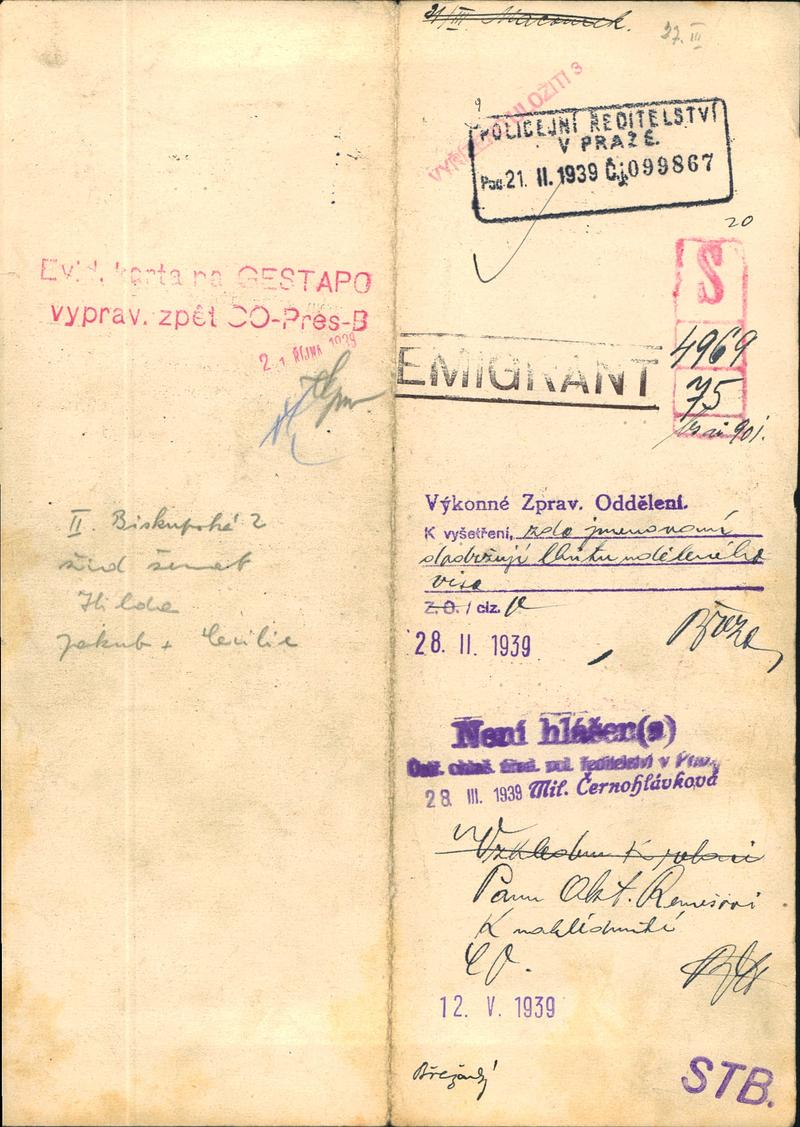 Evid. karta na GESTAPO
vyprav. zpět CO-Pres-B
2 1 ŘÍJNA 1939
II. Biskupská 2
žid ženat
Hilda
Jakub + Cecilie
21/III Macourek.
27. III
VYŘ ULOŽITI 3
9
POLICEJNÍ ŘEDITELSTVÍ
V PRAZE.
Pod. 21. II. 1939 Čj. 099867
20
S
4969
EMIGRANT
75
901.
Výkonné Zprav. Oddělení.
K vyšetření, zda jmenovaní
dodržují lhůtu uděleného
visa
Z.O. / ciz.
28. II. 1939
Není hlášen(a)
Ústř. ohlaš. úřad. pol. ředitelství v Praze
28 III. 1939 Mil. Černohlávková
Vzhledem k
Panu Okt. Remešovi
K nahlédnutí
12. V. 1939
STB.